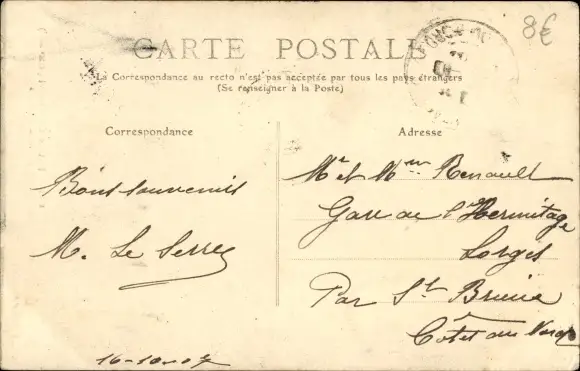 8€
CARTE POSTALE
La Correspondance au recto n'est pas acceptée par tous les pays étrangers
(Se renseigner à la Poste)
Correspondance
Adresse
Bons souvenirs
M. Le Serrey
16-10-07
Mr et Mme Renault
Gare de l'Hermitage
Lorges
Par St Brieuc
Côtes du Nord